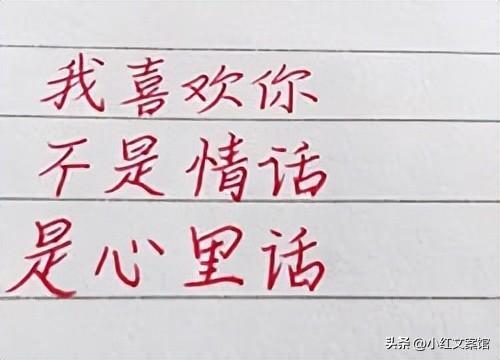 我喜欢你
不是情话
是心里话
头条 @小红文案馆